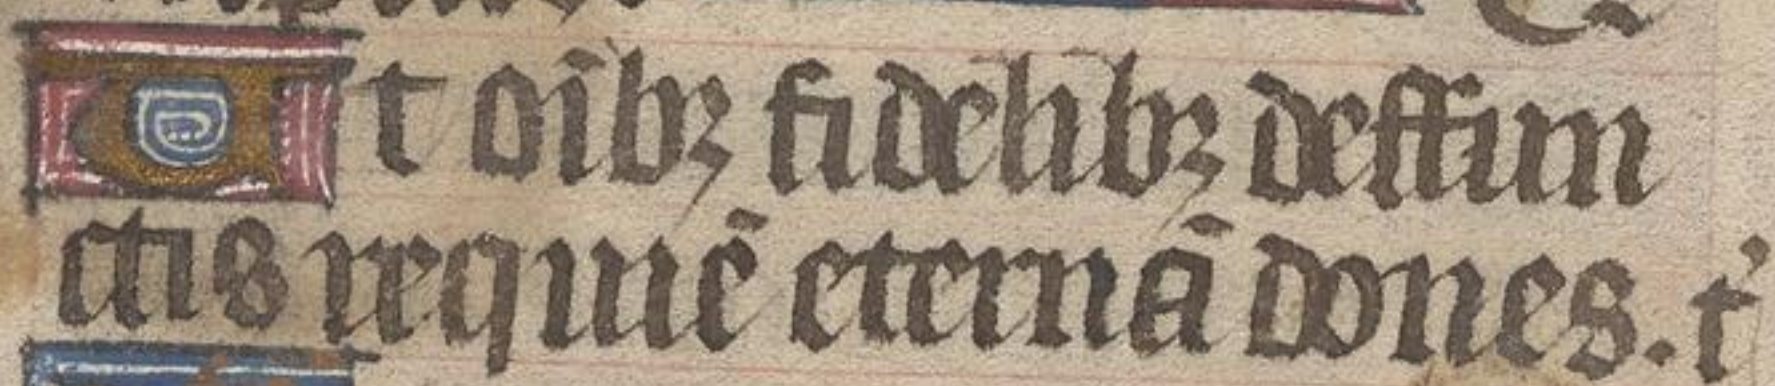 Ut oībꝫ fidelibꝫ deffun
ctis requiē eternā dones. t'